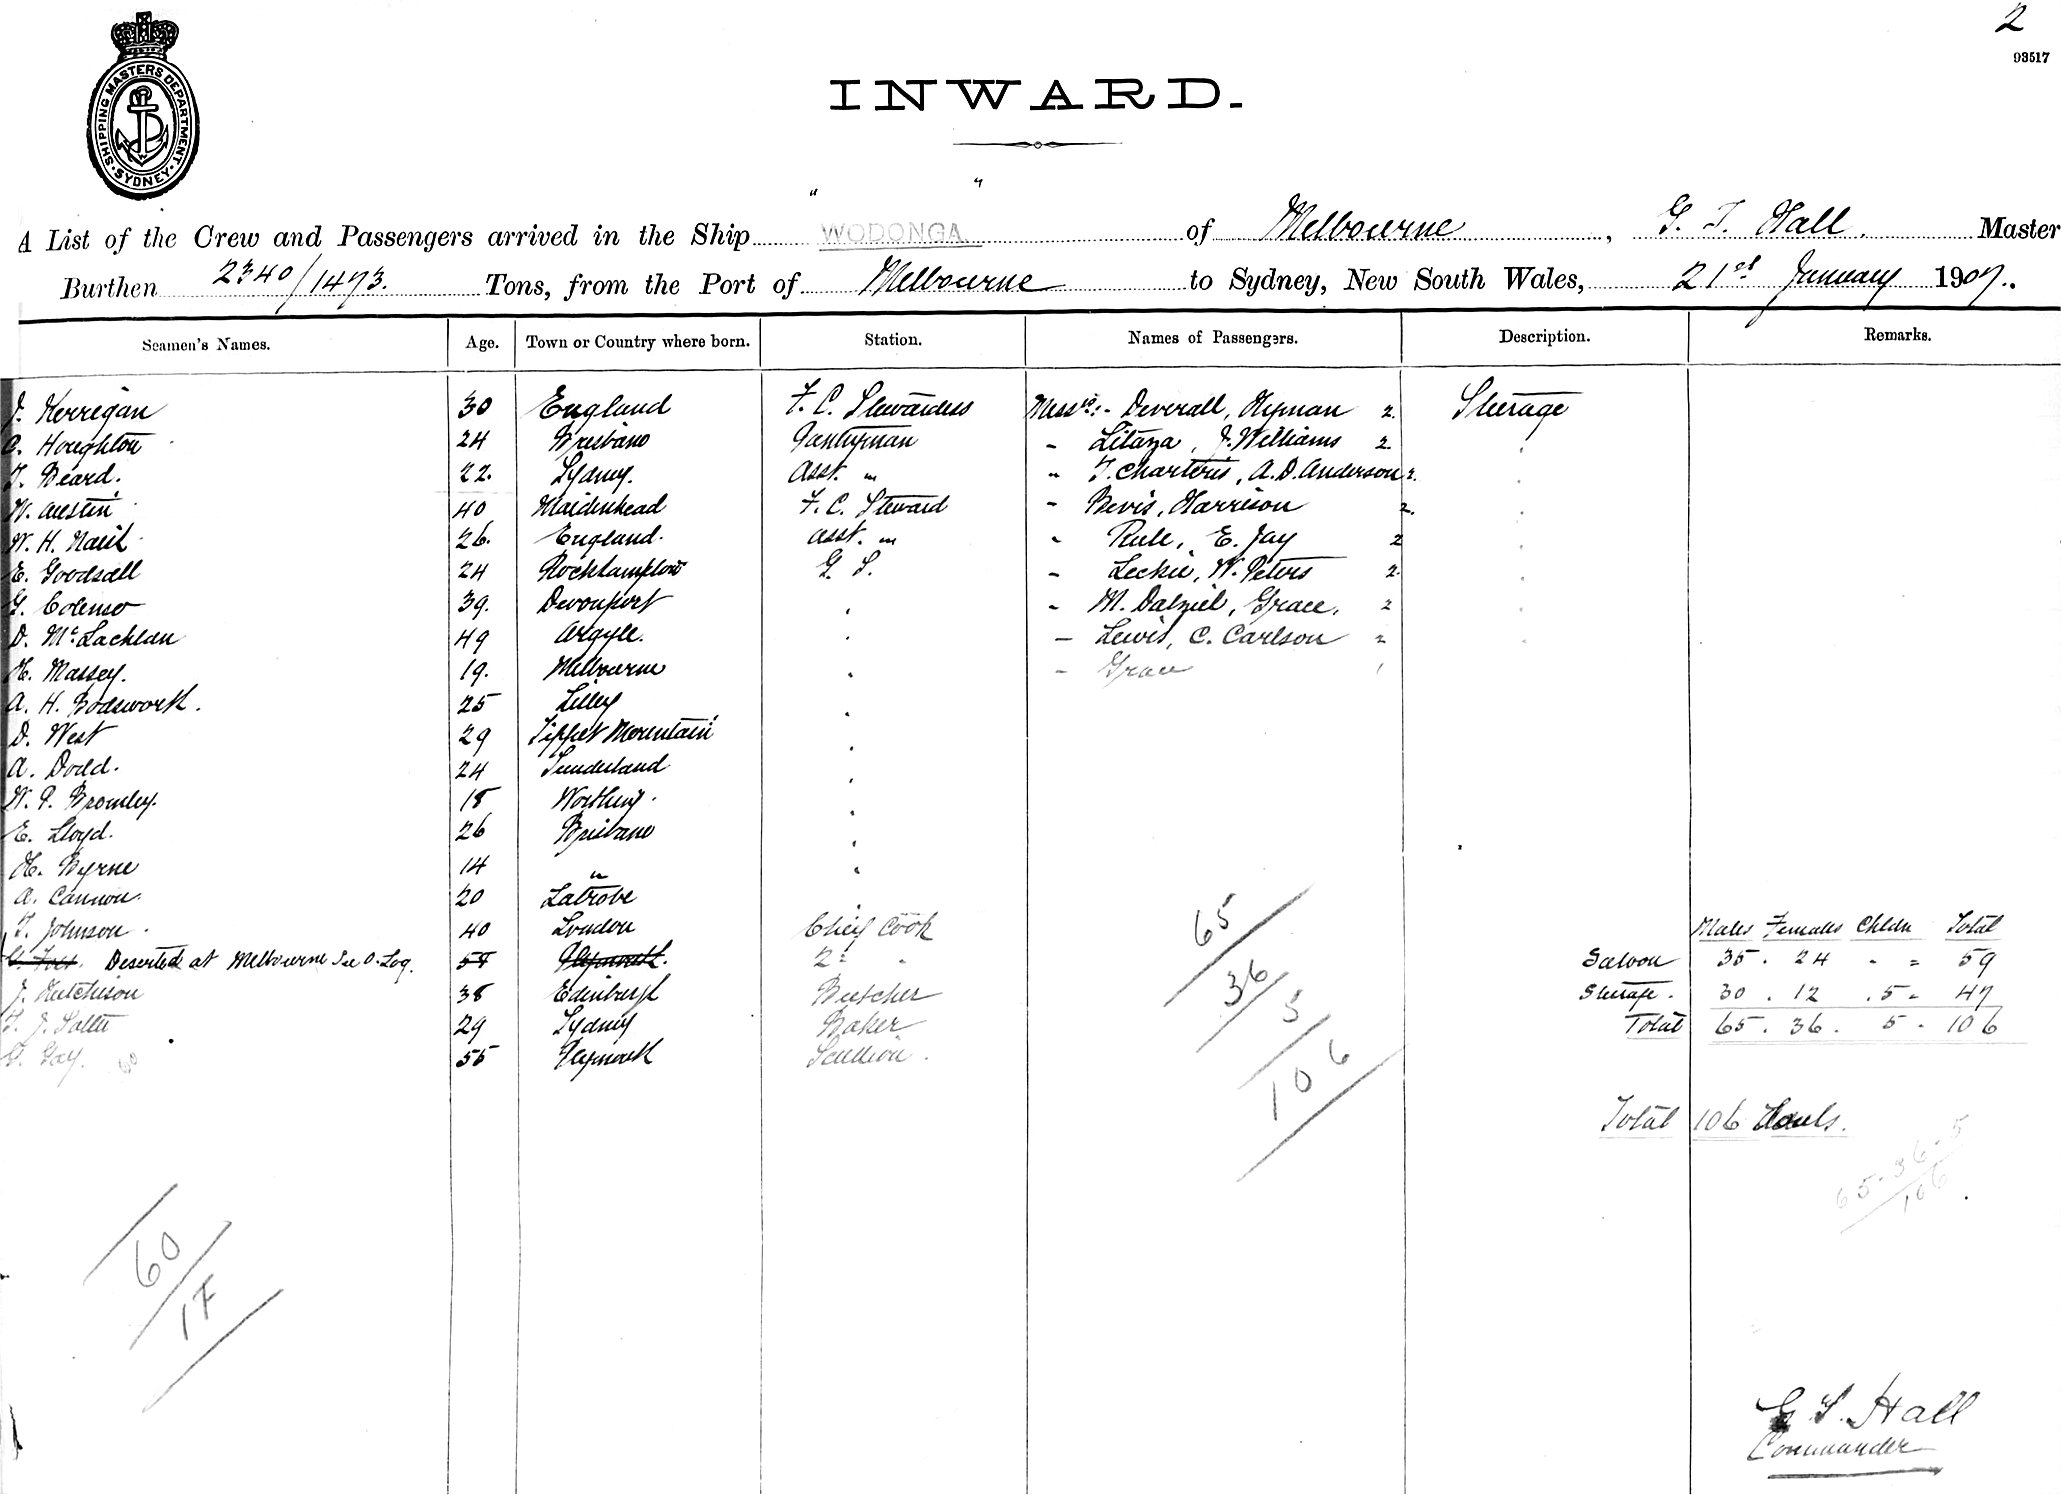 2
93517
SHIPPING MASTERS DEPARTMENT
SYDNEY
INWARD.
" "
A List of the Crew and Passengers arrived in the Ship WODONGA of Melbourne, G. T. Hall. Master
Burthen 2340/1473. Tons, from the Port of Melbourne to Sydney, New South Wales, 21st January 1907.
Seamen's Names. Age. Town or Country where born. Station. Names of Passengers. Description. Remarks.
J. Kerrigan 30 England F. C. Stewardess Messrs:- Deverall, Hyman 2. Steerage
C. Houghton 24 Brisbane Pantryman " Litaza, J. Williams 2
T. Beard. 22. Sydney. Asst. " " T. Charteris, A. D. Anderson 2.
W. Austin 40 Maidenhead F. C. Steward " Bevis, Harrison 2.
W. H. Nail 26. England. Asst. " " Rule, E. Jay 2
E. Goodsall 24 Rockhampton G. S. " Leckie, W. Peters 2.
G. Colenso 39. Devonport " M. Dalziel, Grace, 2
D. McLachlan 49 Argyle. " Lewis, C. Carlson 2
H. Massey. 19. Melbourne " Grace 1
A. H. Bodsworth. 25 Lilley
D. West 29 Tippet Mountain
A. Dodd. 24 Sunderland
W. P. Bromley. 18 Worthing.
E. Lloyd. 26 Brisbane
H. Byrne 14 "
A. Cannon. 20 Latrobe
T. Johnson. 40 London Chief Cook
Deserted at Melbourne See O. Log. 58 Plymouth. 2d "
J. Hutchison 38 Edinburgh Butcher
T. J. 29 Sydney Baker
G. Gay. 55 Plymouth Scullion.
60
65
36
5
106
Males Females Chldn Total
Saloon 35. 24 " = 59
Steerage. 30. 12. 5 = 47
Total 65. 36. 5. 106
Total 106 Souls.
65-36-5
106
60
17
G T. Hall
Commander